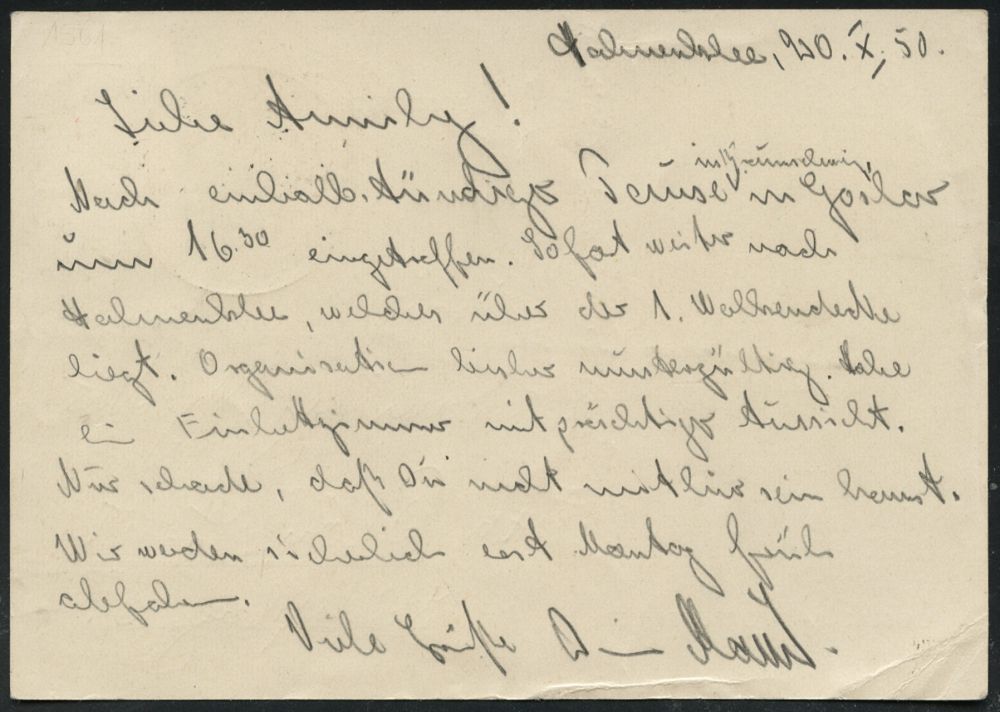 Hahnenklee, 20.X.50.
Liebe Annily!
Nach einhalbstündiger Pause in Braunschweig, in Goslar
um 16.30 eingetroffen. Sofort weiter nach
Hahnenklee, welches über der 1. Wolkendecke
liegt. Organisation bisher mustergültig. Habe
ein Einbettzimmer mit prächtiger Aussicht.
Nur schade, daß Du nicht mit hier sein kannst.
Wir werden sicherlich erst Montag früh
abfahren.
Viele Grüße Dein